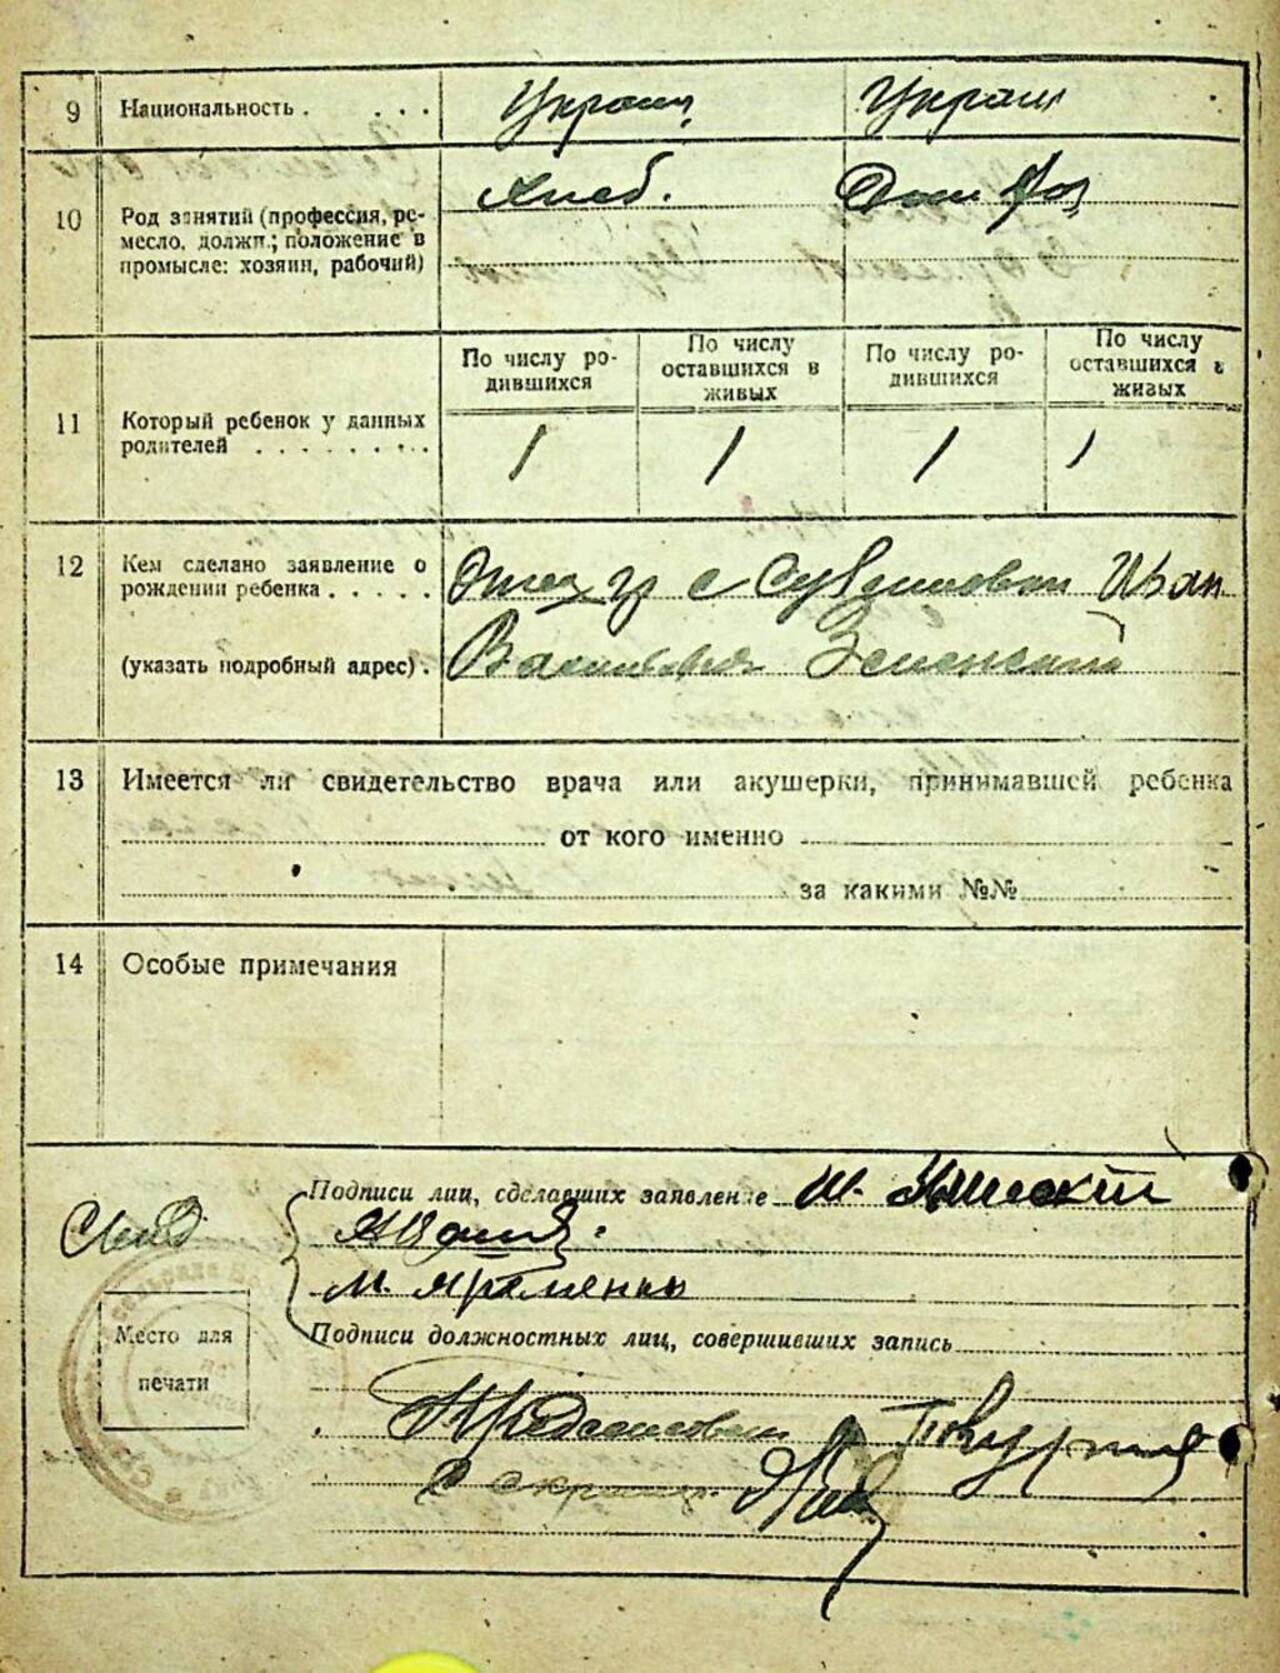 9 Национальность . . . . Украин, Украин
10 Род занятий (профессия, ре-
месло, должн.; положение в
промысле: хозяин, рабочий)
Хлеб. Дом хоз
11 Который ребенок у данных
родителей . . . . . . . .
По числу ро-
дившихся
По числу
оставшихся в
живых
По числу ро-
дившихся
По числу
оставшихся в
живых
1 1 1 1
12 Кем сделано заявление о
рождении ребенка . . . . .
(указать подробный адрес) .
Отец гр с Иван
Зеленский
13 Имеется ли свидетельство врача или акушерки, принимавшей ребенка
от кого именно
за какими №№
14 Особые примечания
Подписи лиц, сделавших заявление
М. Яременко
Место для
печати
Подписи должностных лиц, совершивших запись